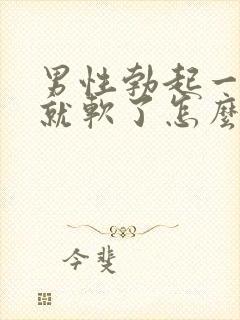 男性勃起一
就軟了怎麼
今斐